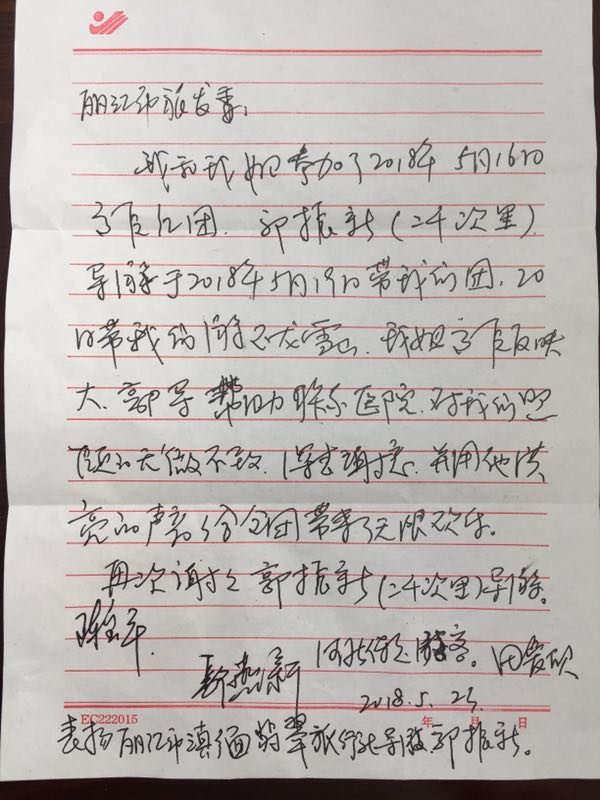 丽江市旅发委：
我和我姐参加了2018年5月16日
高反反团．郭振新（二千次里）
导游于2018年5月19日带我们团．20
日带我们游玉龙雪山．我姐高反反映
大．郭导帮助联系医院．对我们照
顾的无微不致．非常谢谢．并用他洪
亮的声音给全团带来了无限欢乐．
再次谢谢郭振新（二千次里）导游。
河北衡水游客。田贵硕
2018.5.25.
EC222015
年 月 日
表扬丽江市滇缅翡翠旅行社导游郭振新。